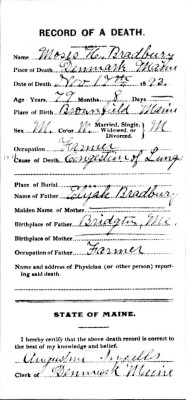 RECORD OF A DEATH.
Name Moses H. Bradbury
Place of Death Denmark Maine
Date of Death, Nov 17th 1892.
Age, Years, 79 Months, 8 Days
Place of Birth, Brownfield Maine
Sex M. Color W. Married, Single, Widowed, or Divorced. M
Occupation Farmer
Cause of Death, Congestion of Lung
Place of Burial
Name of Father, Elijah Bradbury
Maiden Name of Mother
Birthplace of Father, Bridgton, Me.
Birthplace of Mother,
Occupation of Father, Farmer
Name and address of Physician (or other person) reporting
said death.
STATE OF MAINE.
I hereby certify that the above death record is correct to
the best of my knowledge and belief.
Augustine Ingalls
Clerk of Denmark Maine